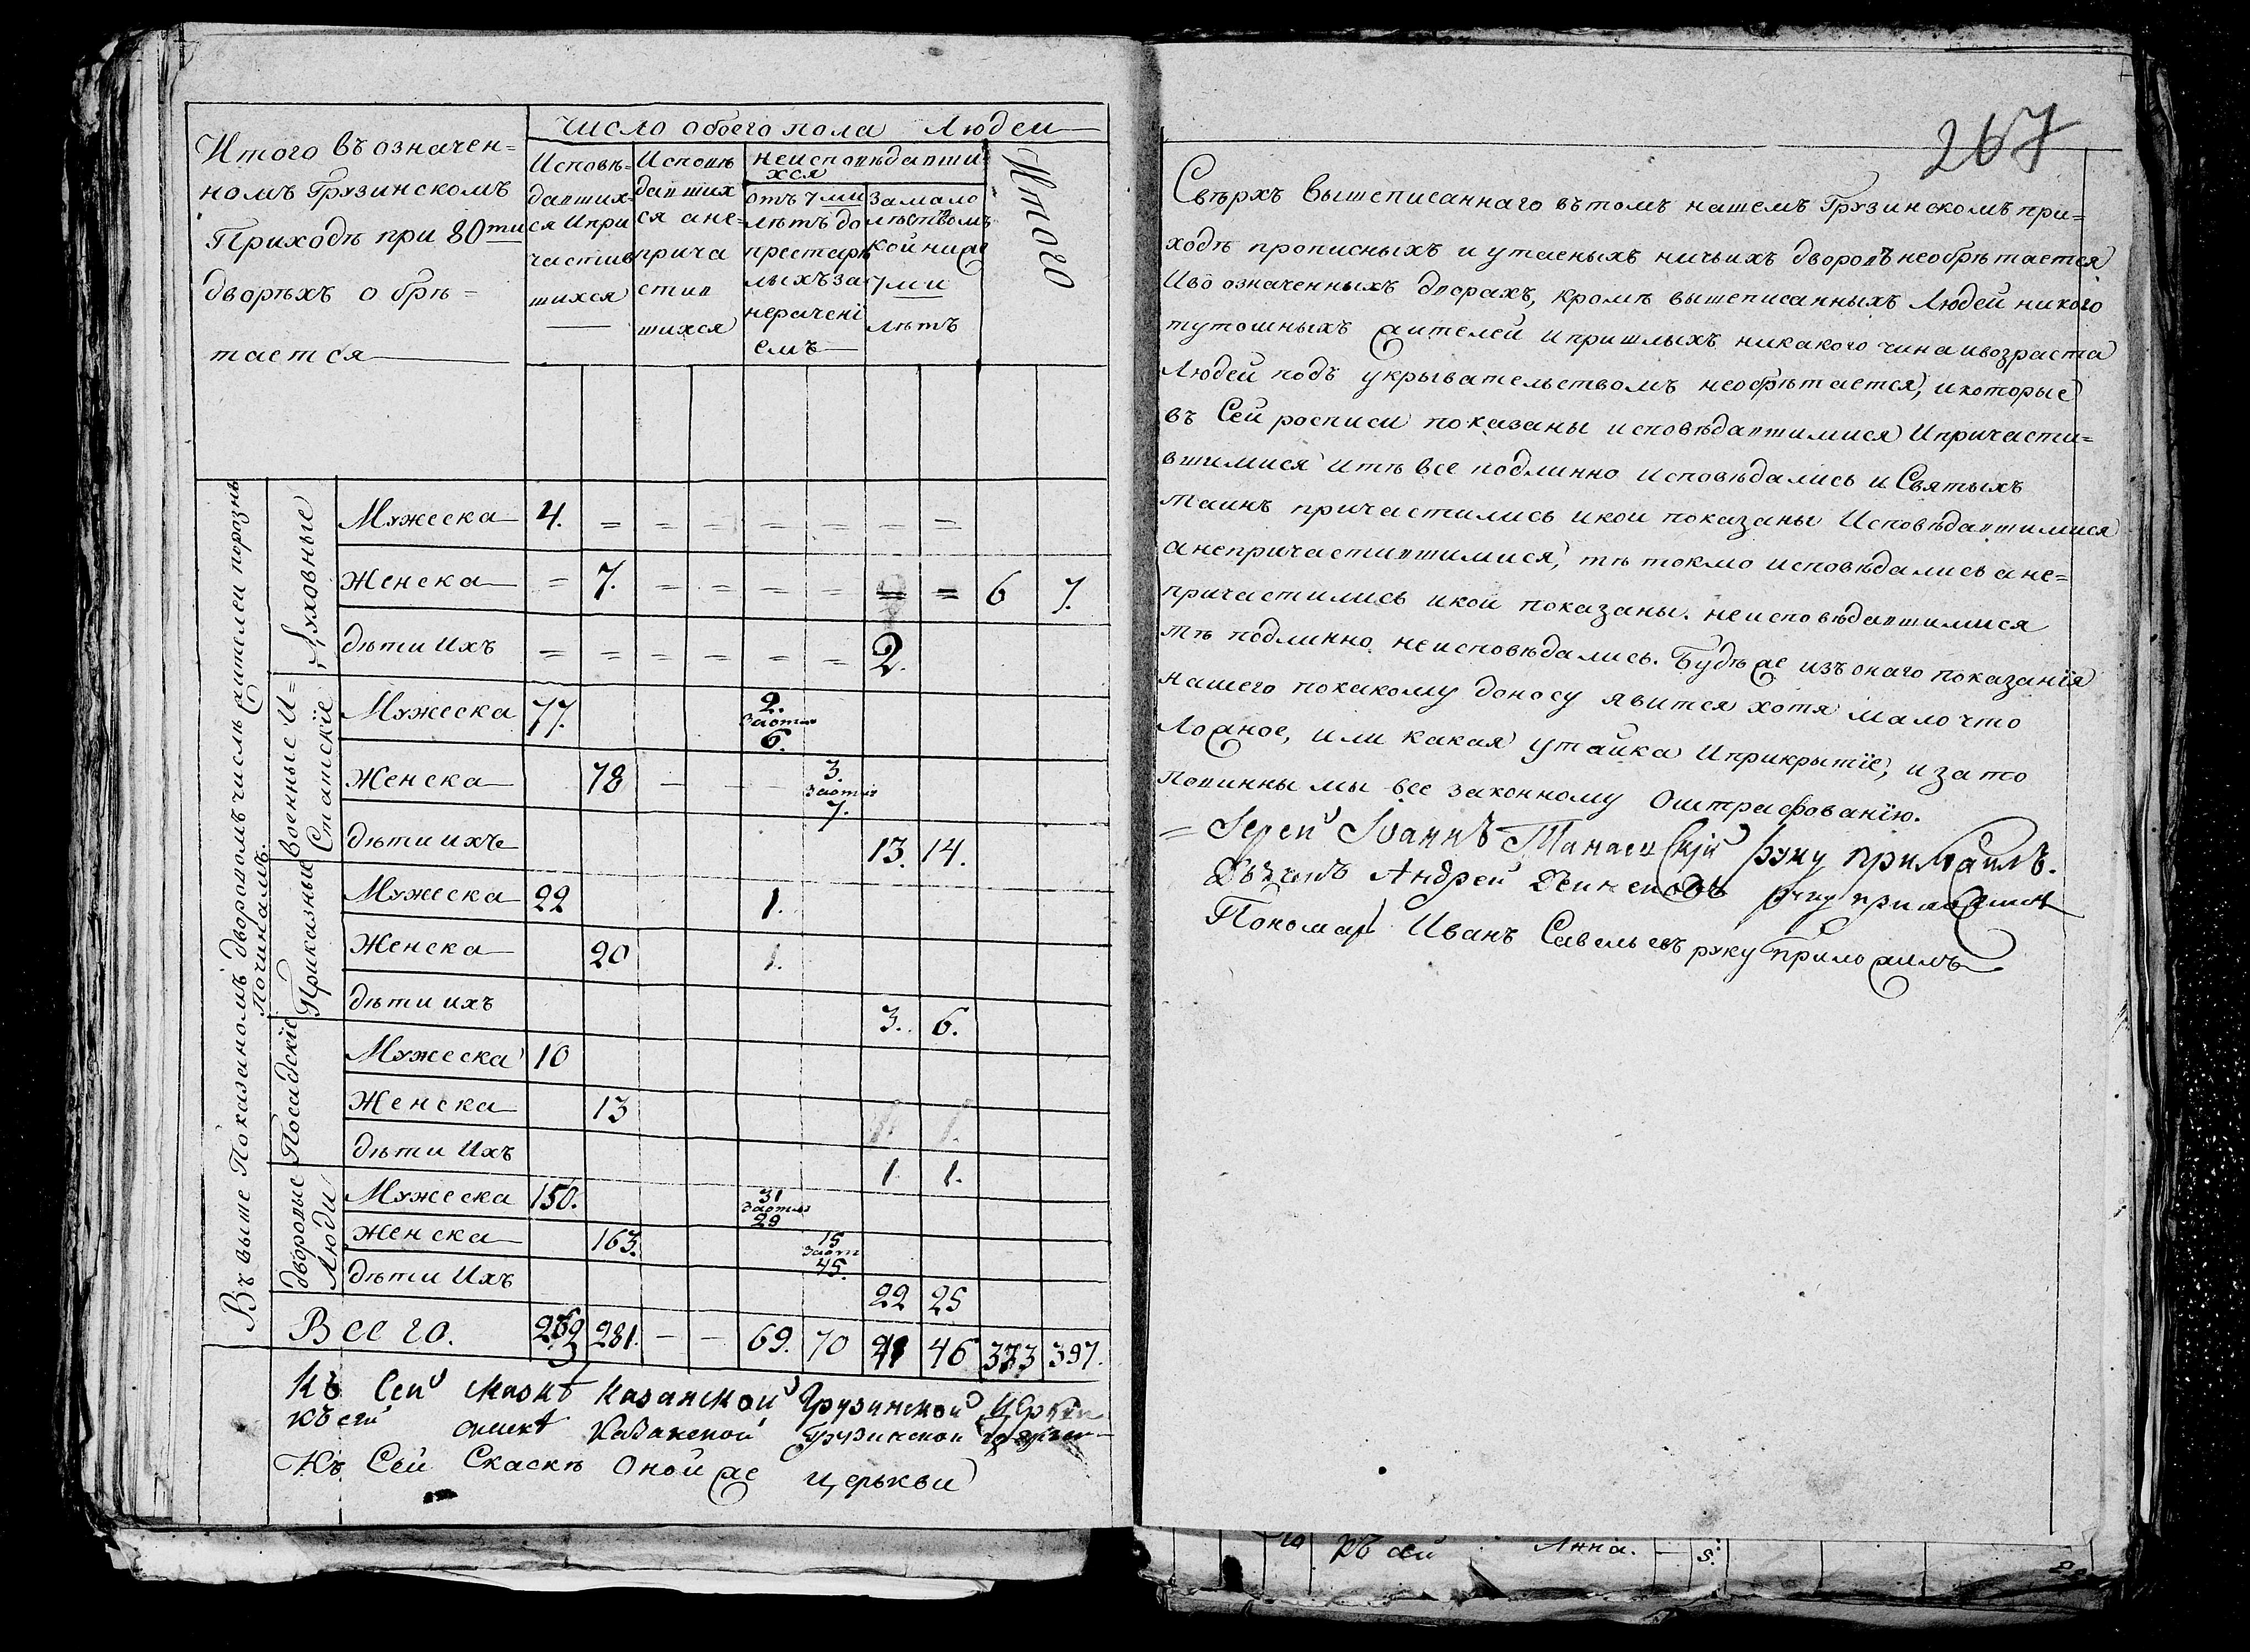 Итого въ означен=
номъ Грузинскомъ
Приходѣ при 80ти
дворѣхъ обрѣ=
тается
число обоего пола Людеи
Исповѣ=
давших=
ся И при
частив
шихся
Исповѣ
давших
ся а не=
прича
стив
шихся
неисповѣдавши
хся
отъ 7ми
лѣтъ до
престарѣ
лыхъ за
нерачені
емъ
за мало
лѣтствомъ
кои ниже
7ми
лѣтъ
Итого
Въ выше Показаномъ дворовомъ числѣ жителеи порознь
По чинамъ.
Духовные
Мужеска 4. = = = = = = =
Женска = 7. = = = = = = 6 7.
дѣти ихъ = = = = = = 2.
Военные И=
Статскіе
Мужеска 77. 2.
за отл
6.
Женска 78 — — 3.
за отл
7.
дѣти ихъ 13. 14.
Приказные
Мужеска 22 1.
Женска 20 1.
дѣти ихъ 3. 6.
Посадскіе
Мужеска 10
Женска 13 1. 1.
дѣти Ихъ 1. 1.
дворовые
Люди
Мужеска 150. 31
за отл
29
Женска 163. 15
за отл
45.
дѣти Ихъ 22 25
Всего. 281. — — 69. 70 41 46 373 397.
Къ Сей Казанской Грузинской Церкви
къ сей Казанской Грузинской
Къ Сей Скаскѣ Оной же церькви
267
Свѣрхъ вышеписаннаго въ томъ нашемъ Грузинскомъ при=
ходѣ прописныхъ и утаеныхъ ничьихъ дворовъ необрѣтается
И во означенныхъ дворахъ, кромѣ вышеписанныхъ Людей никого
тутошныхъ жителей и пришлыхъ никакого чина и возраста
Людей подъ укрывательствомъ необрѣтается, и которые
въ Сей росписи показаны исповѣдавшимися И причасти=
вшимися и тѣ все подлинно исповѣдались и Святыхъ
таинъ причастились и кои показаны Исповѣдавшимися
а непричастившимися, тѣ токмо исповѣдались а не=
причастились и кои показаны. неисповѣдавшимися
тѣ подлинно неисповѣдались. Будѣ же изъ онаго показанїя
нашего покакому доносу явится хотя мало что
Ложное, или какая утайка И прикрытїе, и за то
повинны мы все законному оштрафованїю.
= Іерей Іоаннъ руку приложилъ.
Дьячокъ Андрей руку приложилъ
Пономарь Иванъ Савельевъ руку приложилъ
къ сей Анна. — 5.